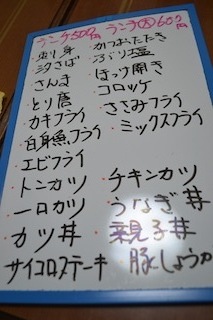 ランチ500円 ランチ大600円
・刺身 ・かつおたたき
・〆さば ・ぶり塩
・さんま ・ほっけ開き
・とり唐 ・コロッケ
・カキフライ ・ささみフライ
・白身魚フライ ・ミックスフライ
・エビフライ
・トンカツ ・チキンカツ
・一口カツ ・うなぎ丼
・カツ丼 ・親子丼
・サイコロステーキ ・豚しょうが